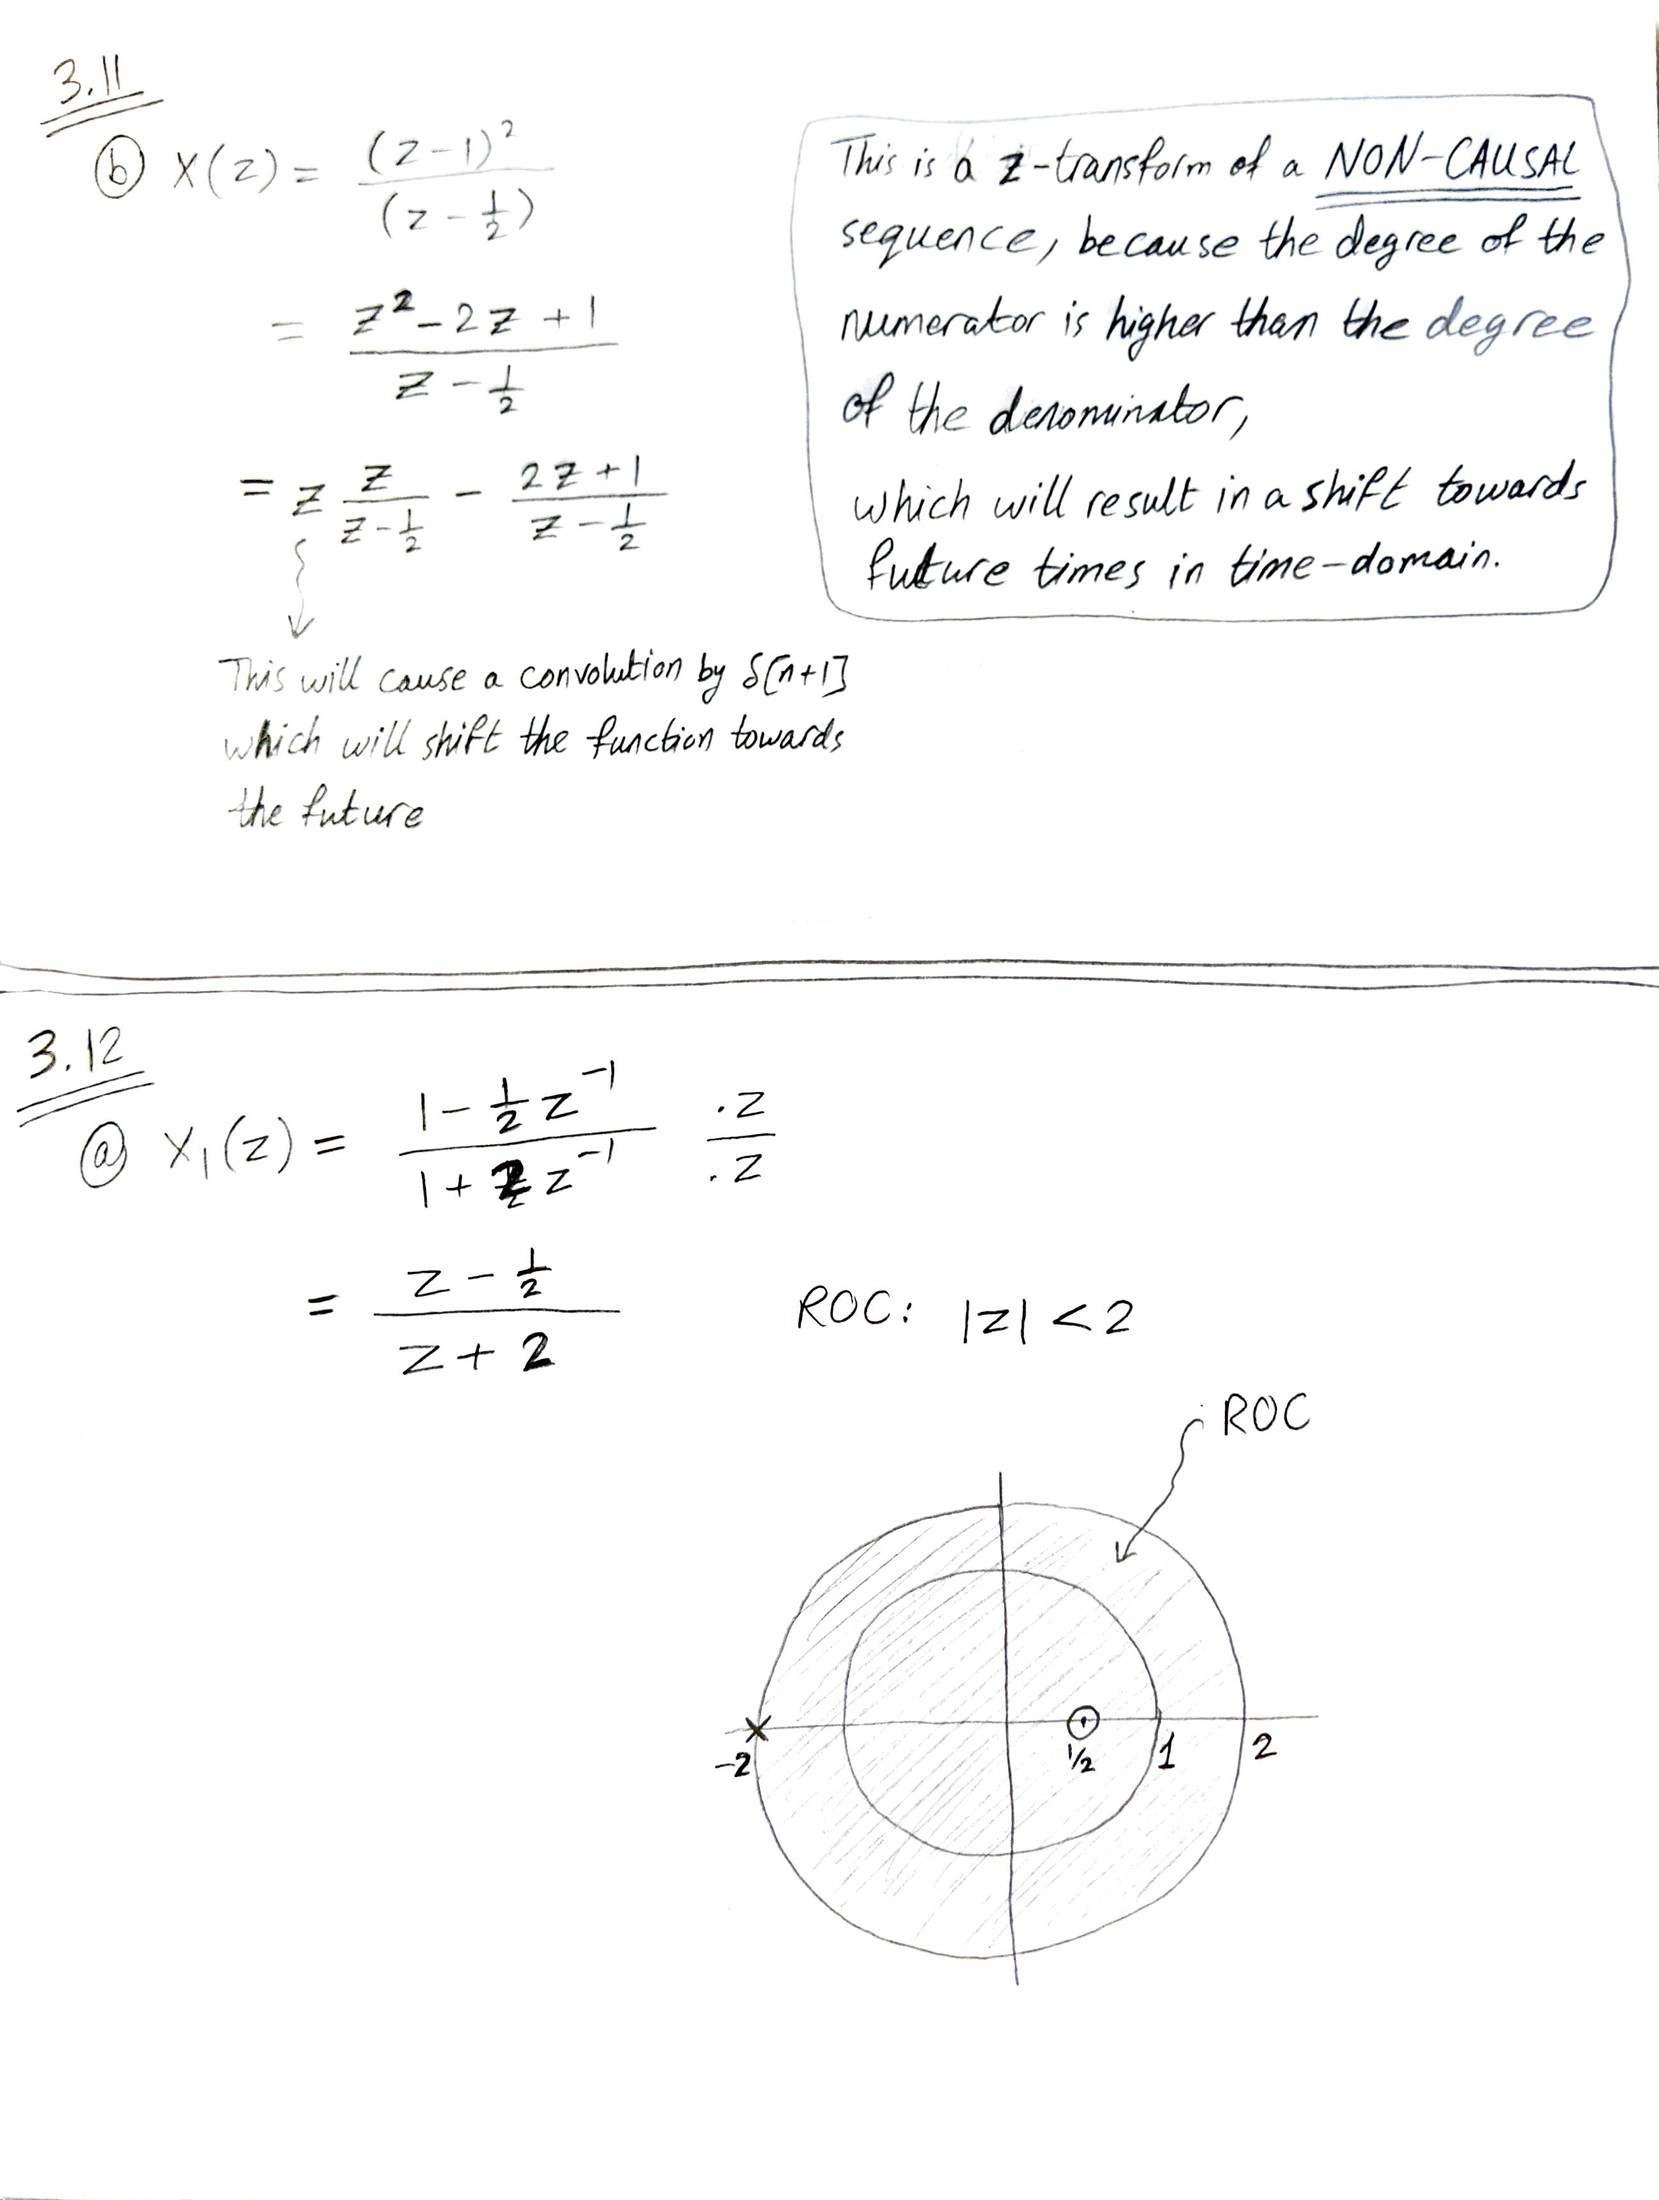 3.11
ⓑ X(z) = (z-1)² / (z - 1/2)
= z² - 2z + 1 / z - 1/2
= z z / z - 1/2 - 2z + 1 / z - 1/2
This will cause a convolution by δ[n+1]
which will shift the function towards
the future
This is a z-transform of a NON-CAUSAL
sequence, because the degree of the
numerator is higher than the degree
of the denominator,
which will result in a shift towards
future times in time-domain.
3.12
ⓐ X₁(z) = 1 - 1/2 z⁻¹ / 1 + 2 z⁻¹ .z / .z
= z - 1/2 / z + 2
ROC: |z| < 2
ROC
-2 1/2 1 2